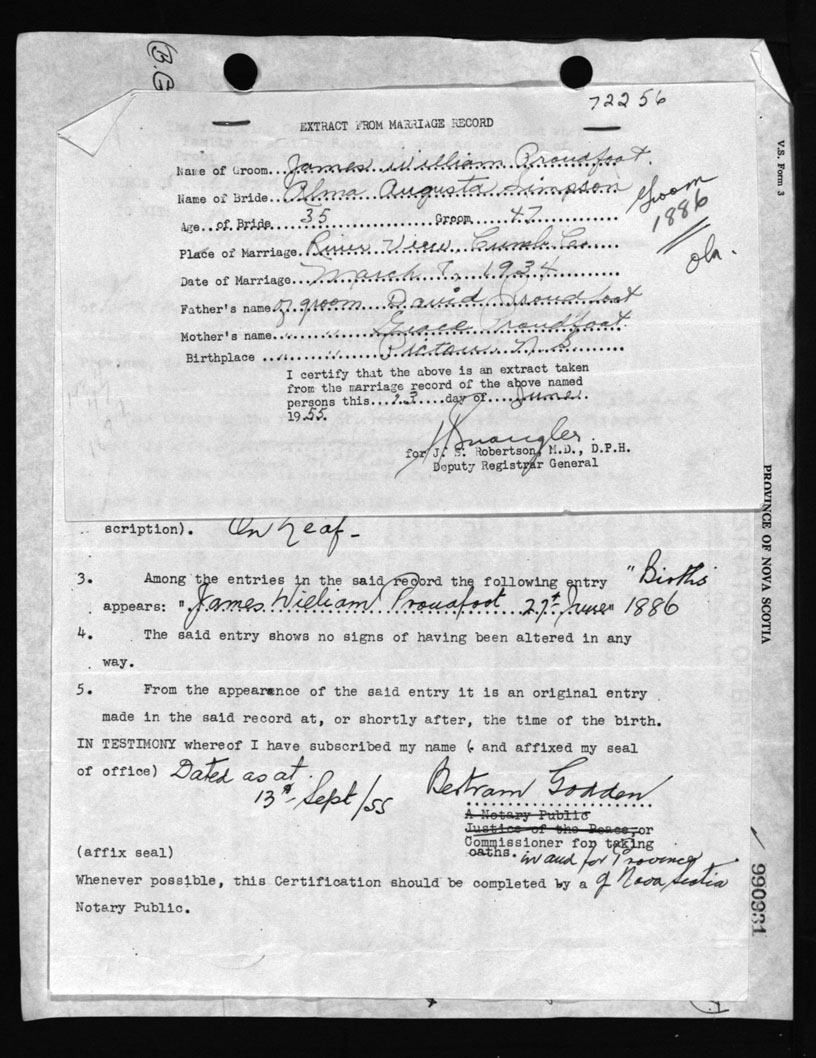 (B.G
72256
EXTRACT FROM MARRIAGE RECORD
Name of Groom...James William Proudfoot.
Name of Bride...Alma Augusta Simpson
Groom
1886
ok.
Age..of Bride...35...Groom...47...
Place of Marriage..River View Cumb. Co....
Date of Marriage...March 7, 1934...
Father's name of groom David Proudfoot
Mother's name..." " Grace Proudfoot.
Birthplace ..." " Pictou N.S....
I certify that the above is an extract taken
from the marriage record of the above named
persons this...23...day of...June...
1955.
for J. S. Robertson, M.D., D.P.H.
Deputy Registrar General
scription). On Leaf-
3. Among the entries in the said record the following entry "Births"
appears: "James William Proudfoot 27th June" 1886
4. The said entry shows no signs of having been altered in any
way.
5. From the appearance of the said entry it is an original entry
made in the said record at, or shortly after, the time of the birth.
IN TESTIMONY whereof I have subscribed my name ( and affixed my seal
of office) Dated as at
13th Sept/55
Bertram Godden
A Notary Public
Justice of the Peace, or
Commissioner for taking
oaths. in and for Province
of Nova Scotia
(affix seal)
Whenever possible, this Certification should be completed by a
Notary Public.
V.S. Form 3
PROVINCE OF NOVA SCOTIA
990931